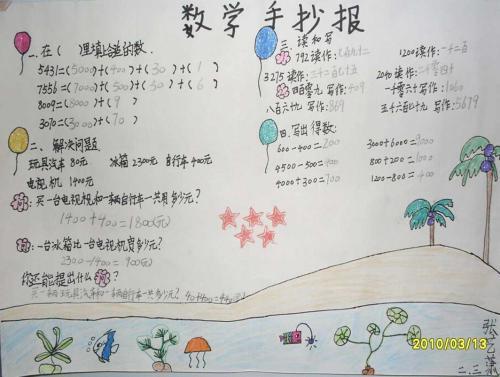 数学手抄报
一.在( )里填上合适的数.
5431=(5000)+(400)+(30)+(1)
7556=(7000)+(500)+(50)+(6)
8009=(8000)+(9)
3070=(3000)+(70)
二、解决问题
玩具汽车 80元 冰箱 2300元 自行车 400元
电视机 1400元
买一台电视机和一辆自行车一共用多少元?
1400+400=1800(元)
一台冰箱比一台电视机贵多少元?
2300-1400=900(元)
你还能提出什么?
买一辆玩具汽车和一辆自行车一共多少元?
三.读和写
792读作:七百九十二 1200读作:一千二百
3275读作:三千二百七十五 2040读作:二千零四十
四百零九 写作:409 一千零六十 写作:1060
八百六十九 写作:869 五千六百七十九 写作:5679
四.写出得数:
600-400=200 3000+6000=9000
4500-500=400 800+200=1000
4000+300=700 1200-800=400
张艺
二.三
2010/03/13